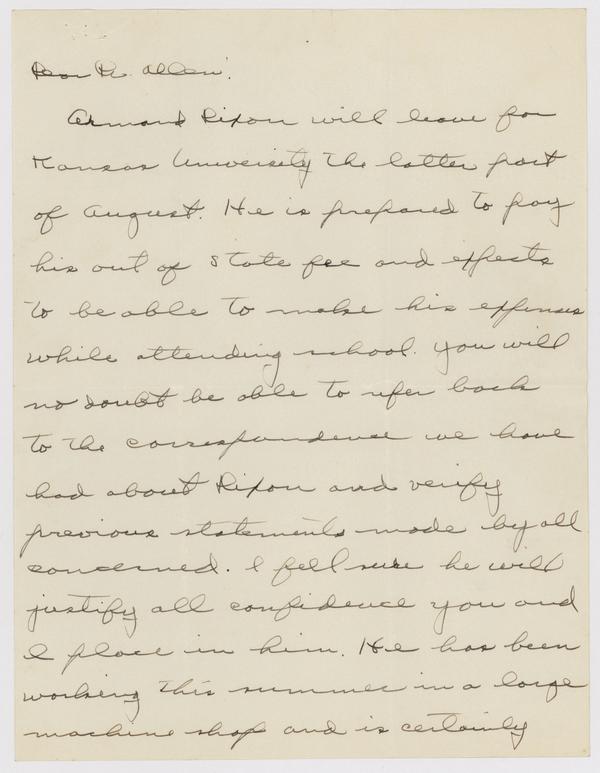 Dear Mr. Allen:
Armand Dixon will leave for
Kansas University the latter part
of August. He is prepared to pay
his out of State fee and expects
to be able to make his expenses
while attending school. You will
no doubt be able to refer back
to the correspondence we have
had about Dixon and verify
previous statements made by all
concerned. I fell sure he will
justify all confidence you and
I place in him. He has been
working this summer in a large
machine shop and is certainly